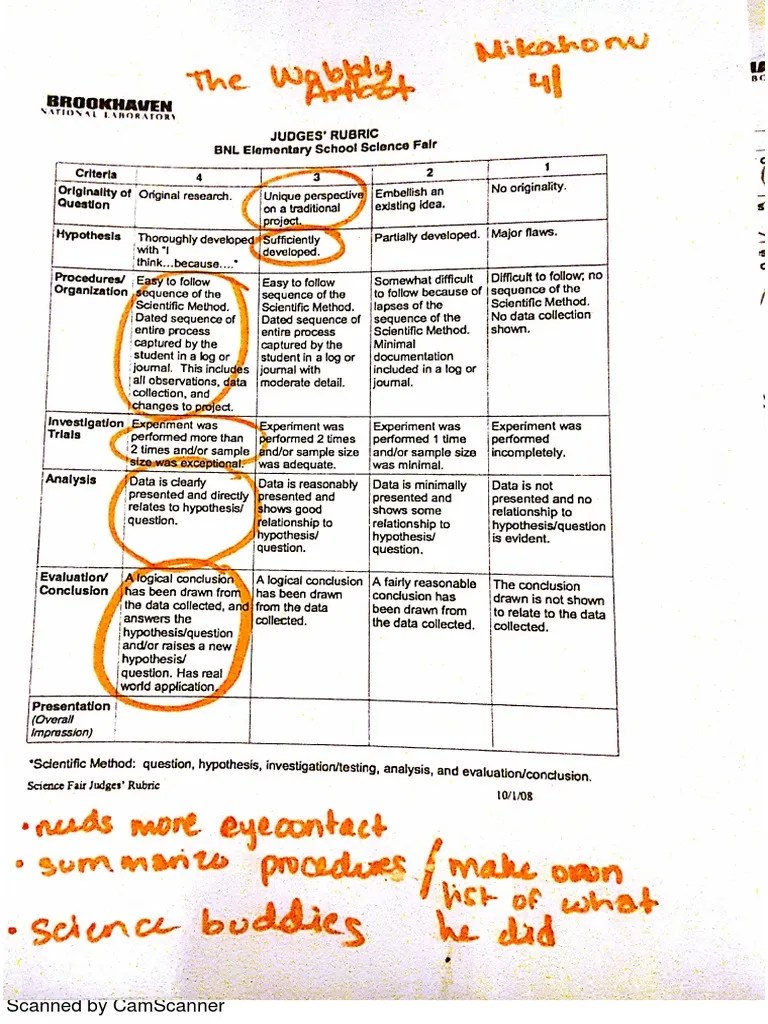 The Wobbly
Artbot
Mikahorw
4/
BROOKHAVEN
NATIONAL LABORATORY
JUDGES' RUBRIC
BNL Elementary School Science Fair
Criteria 4 3 2 1
Originality of
Question
Original research.
Unique perspective
on a traditional
project.
Embellish an
existing idea.
No originality.
Hypothesis
Thoroughly developed
with "I
think...because...."
Sufficiently
developed.
Partially developed.
Major flaws.
Procedures/
Organization
Easy to follow
sequence of the
Scientific Method.
Dated sequence of
entire process
captured by the
student in a log or
journal. This includes
all observations, data
collection, and
changes to project.
Easy to follow
sequence of the
Scientific Method.
Dated sequence of
entire process
captured by the
student in a log or
journal with
moderate detail.
Somewhat difficult
to follow because of
lapses of the
sequence of the
Scientific Method.
Minimal
documentation
included in a log or
journal.
Difficult to follow; no
sequence of the
Scientific Method.
No data collection
shown.
Investigation
Trials
Experiment was
performed more than
2 times and/or sample
size was exceptional.
Experiment was
performed 2 times
and/or sample size
was adequate.
Experiment was
performed 1 time
and/or sample size
was minimal.
Experiment was
performed
incompletely.
Analysis
Data is clearly
presented and directly
relates to hypothesis/
question.
Data is reasonably
presented and
shows good
relationship to
hypothesis/
question.
Data is minimally
presented and
shows some
relationship to
hypothesis/
question.
Data is not
presented and no
relationship to
hypothesis/question
is evident.
Evaluation/
Conclusion
A logical conclusion
has been drawn from
the data collected, and
answers the
hypothesis/question
and/or raises a new
hypothesis/
question. Has real
world application.
A logical conclusion
has been drawn
from the data
collected.
A fairly reasonable
conclusion has
been drawn from
the data collected.
The conclusion
drawn is not shown
to relate to the data
collected.
Presentation
(Overall
Impression)
*Scientific Method: question, hypothesis, investigation/testing, analysis, and evaluation/conclusion.
Science Fair Judges' Rubric
10/1/08
• needs more eyecontact
• summarize procedures / make own
list of what
he did
• science buddies
Scanned by CamScanner